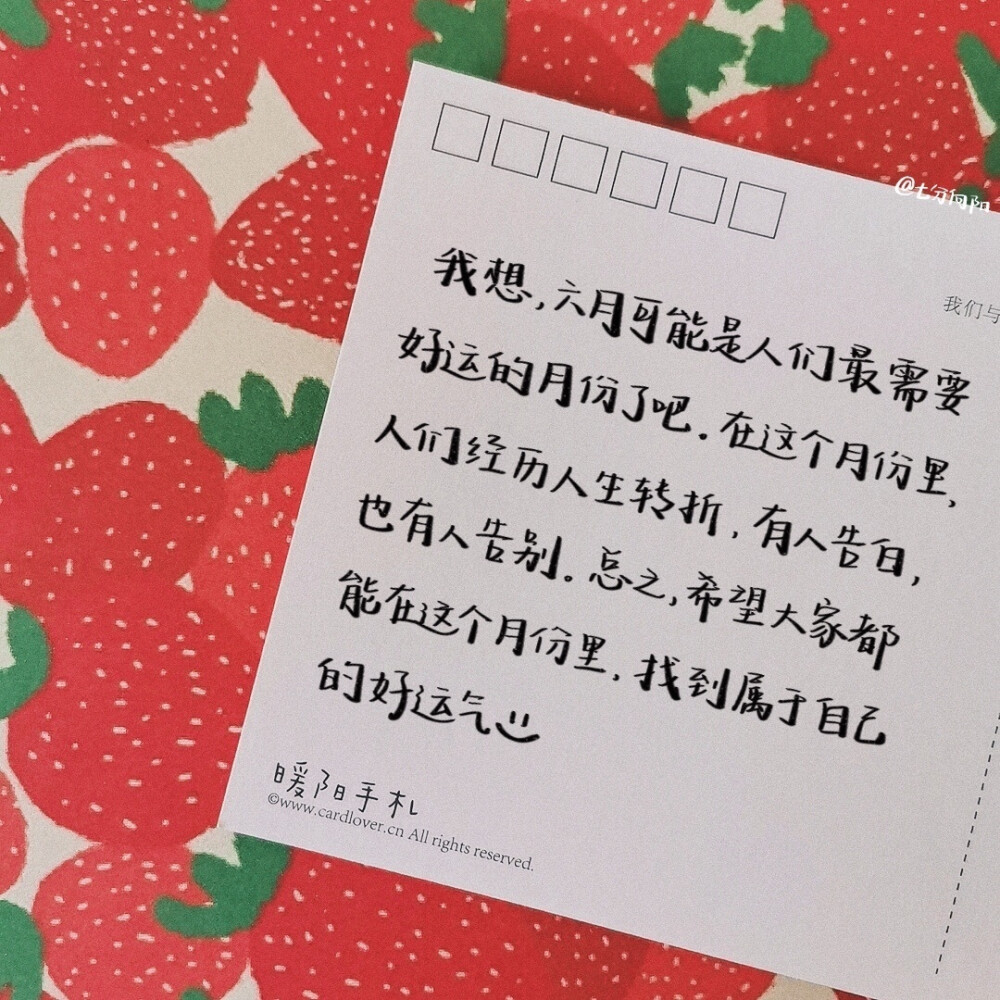 @七分向阳
我们与
我想,六月可能是人们最需要
好运的月份了吧.在这个月份里,
人们经历人生转折,有人告白,
也有人告别。总之,希望大家都
能在这个月份里,找到属于自己
的好运气
暖阳手札
©www.cardlover.cn All rights reserved.